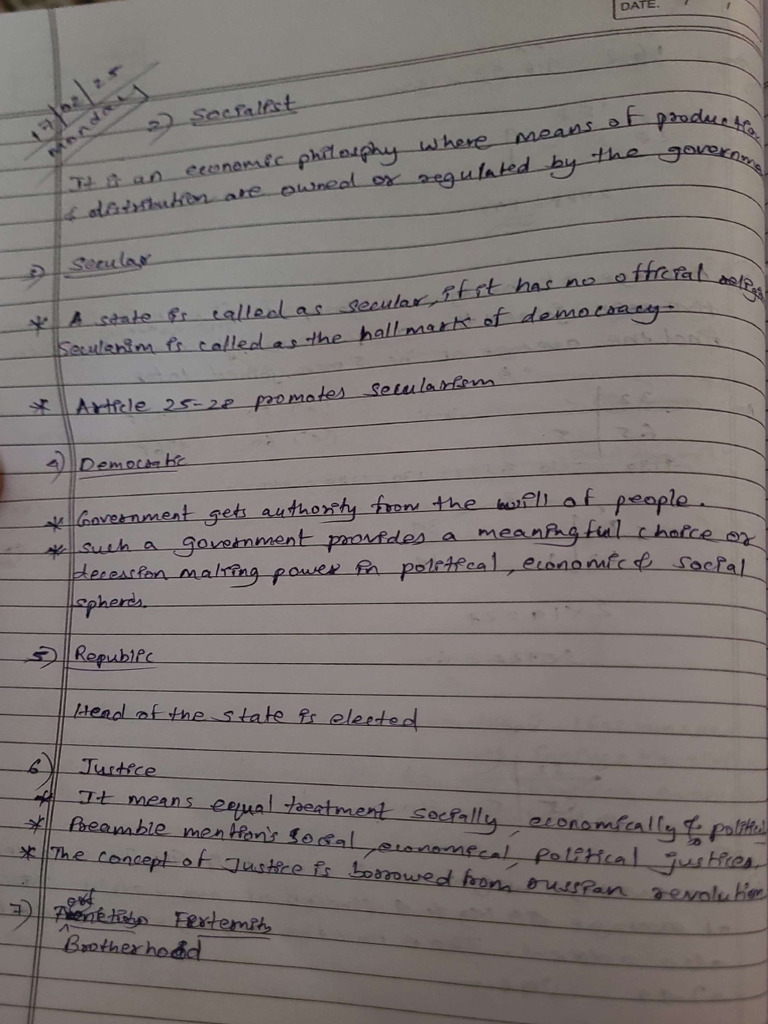 DATE. / /
17/02/25
Monday
2) Socialist
It is an economic philosphy where means of production
& distribution are owned or regulated by the governme
3) Secular
* A state is called as secular, if it has no official religi
Secularism is called as the hallmark of democracy.
* Article 25-28 promotes secularism
4) Democratic
* Government gets authority from the will of people.
* such a government provides a meaningful choice or
decession making power in political, economic & social
spherds.
5) Republic
Head of the state is elected
6) Justice
* It means equal treatment socially, economically & political
* Preamble mention's social, economical, political justices.
* The concept of Justice is borrowed from russian revolution
7)Ферternity
Brotherhood